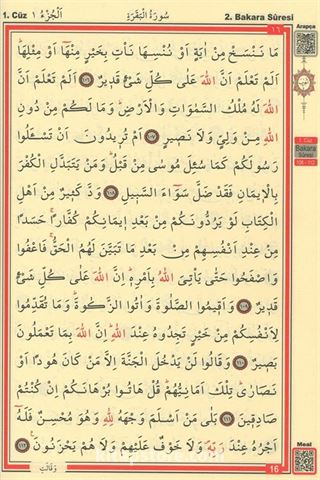 1. Cüz ١ اَلْجُزْءُ
سُورَةُ الْبَقَرَةِ
2. Bakara Sûresi
Arapça
١٦
مَا نَنْسَخْ مِنْ اٰيَةٍ اَوْ نُنْسِهَا نَأْتِ بِخَيْرٍ مِنْهَٓا اَوْ مِثْلِهَاۜ
اَلَمْ تَعْلَمْ اَنَّ اللّٰهَ عَلٰى كُلِّ شَيْءٍ قَدٖيرٌ ﴿١٠٦﴾ اَلَمْ تَعْلَمْ اَنَّ
اللّٰهَ لَهُ مُلْكُ السَّمٰوَاتِ وَالْاَرْضِۜ وَمَا لَكُمْ مِنْ دُونِ
اللّٰهِ مِنْ وَلِيٍّ وَلَا نَصٖيرٍ ﴿١٠٧﴾ اَمْ تُرٖيدُونَ اَنْ تَسْـَٔلُوا
رَسُولَكُمْ كَمَا سُئِلَ مُوسٰى مِنْ قَبْلُۜ وَمَنْ يَتَبَدَّلِ الْكُفْرَ
بِالْاٖيمَانِ فَقَدْ ضَلَّ سَوَٓاءَ السَّبٖيلِ ﴿١٠٨﴾ وَدَّ كَثٖيرٌ مِنْ اَهْلِ
الْكِتَابِ لَوْ يَرُدُّونَكُمْ مِنْ بَعْدِ اٖيمَانِكُمْ كُفَّارًاۚ حَسَدًا
مِنْ عِنْدِ اَنْفُسِهِمْ مِنْ بَعْدِ مَا تَبَيَّنَ لَهُمُ الْحَقُّۚ فَاعْفُوا
وَاصْفَحُوا حَتّٰى يَأْتِيَ اللّٰهُ بِاَمْرِهٖۜ اِنَّ اللّٰهَ عَلٰى كُلِّ شَيْءٍ
قَدٖيرٌ ﴿١٠٩﴾ وَاَقٖيمُوا الصَّلٰوةَ وَاٰتُوا الزَّكٰوةَۜ وَمَا تُقَدِّمُوا
لِاَنْفُسِكُمْ مِنْ خَيْرٍ تَجِدُوهُ عِنْدَ اللّٰهِۜ اِنَّ اللّٰهَ بِمَا تَعْمَلُونَ
بَصٖيرٌ ﴿١١٠﴾ وَقَالُوا لَنْ يَدْخُلَ الْجَنَّةَ اِلَّا مَنْ كَانَ هُودًا اَوْ
نَصَارٰىۜ تِلْكَ اَمَانِيُّهُمْۜ قُلْ هَاتُوا بُرْهَانَكُمْ اِنْ كُنْتُمْ
صَادِقٖينَ ﴿١١١﴾ بَلٰى مَنْ اَسْلَمَ وَجْهَهُ لِلّٰهِ وَهُوَ مُحْسِنٌ فَلَهُٓ
اَجْرُهُ عِنْدَ رَبِّهٖۖ وَلَا خَوْفٌ عَلَيْهِمْ وَلَا هُمْ يَحْزَنُونَ۟ ﴿١١٢﴾
1. Cüz
Bakara
Sûresi
106 - 112
Meal
وَقَالَتِ
16